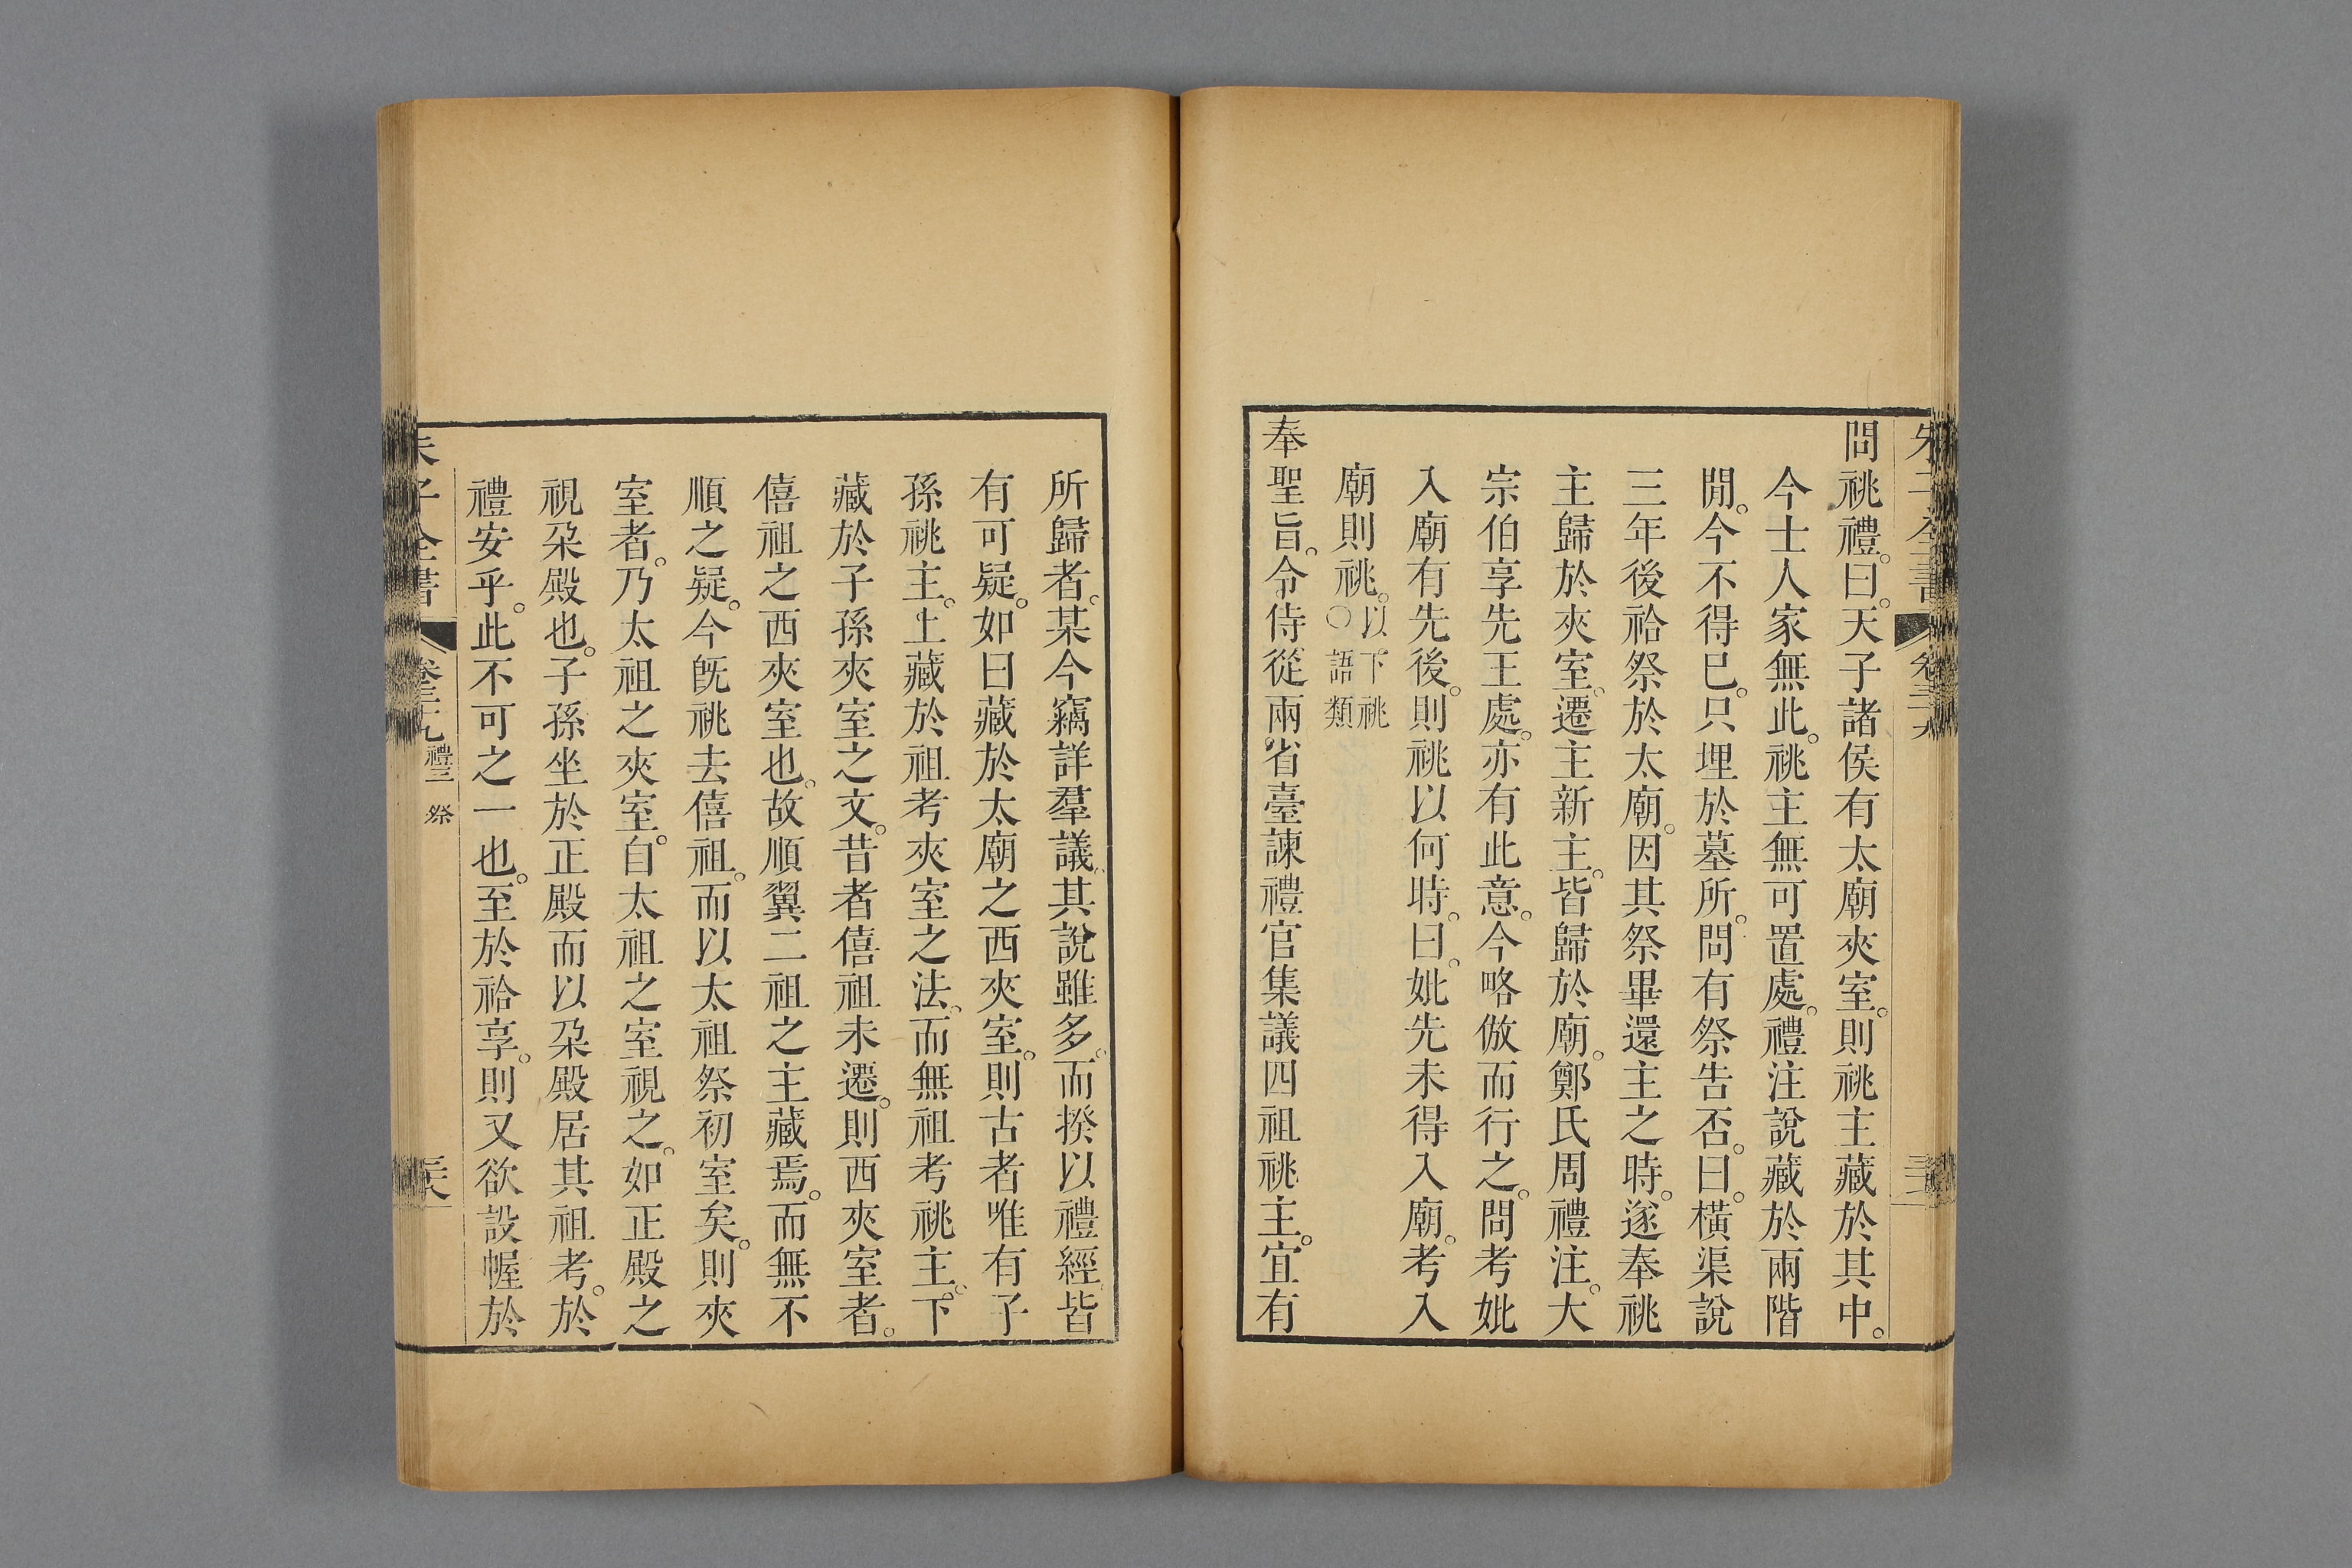 問祧禮。曰。天子諸侯有太廟夾室。則祧主藏於其中。
今士人家無此。祧主無可置處。禮注說藏於兩階
閒。今不得已。只埋於墓所。問有祭告否。曰。橫渠說
三年後祫祭於太廟。因其祭畢還主之時。遂奉祧
主歸於夾室。遷主新主。皆歸於廟。鄭氏周禮注。大
宗伯享先王處。亦有此意。今略倣而行之。問考妣
入廟有先後。則祧以何時。曰。妣先未得入廟。考入
廟則祧。以下祧
○語類
奉聖旨。令侍從兩省臺諫禮官集議四祖祧主。宜有
所歸者。某今竊詳羣議。其說雖多。而揆以禮經。皆
有可疑。如曰藏於太廟之西夾室。則古者唯有子
孫祧主。上藏於祖考夾室之法。而無祖考祧主。下
藏於子孫夾室之文。昔者僖祖未遷。則西夾室者。
僖祖之西夾室也。故順翼二祖之主藏焉。而無不
順之疑。今旣祧去僖祖。而以太祖祭初室矣。則夾
室者。乃太祖之夾室。自太祖之室視之。如正殿之
視朶殿也。子孫坐於正殿而以朶殿居其祖考。於
禮安乎。此不可之一也。至於祫享。則又欲設幄於
子全書
禮三
祭